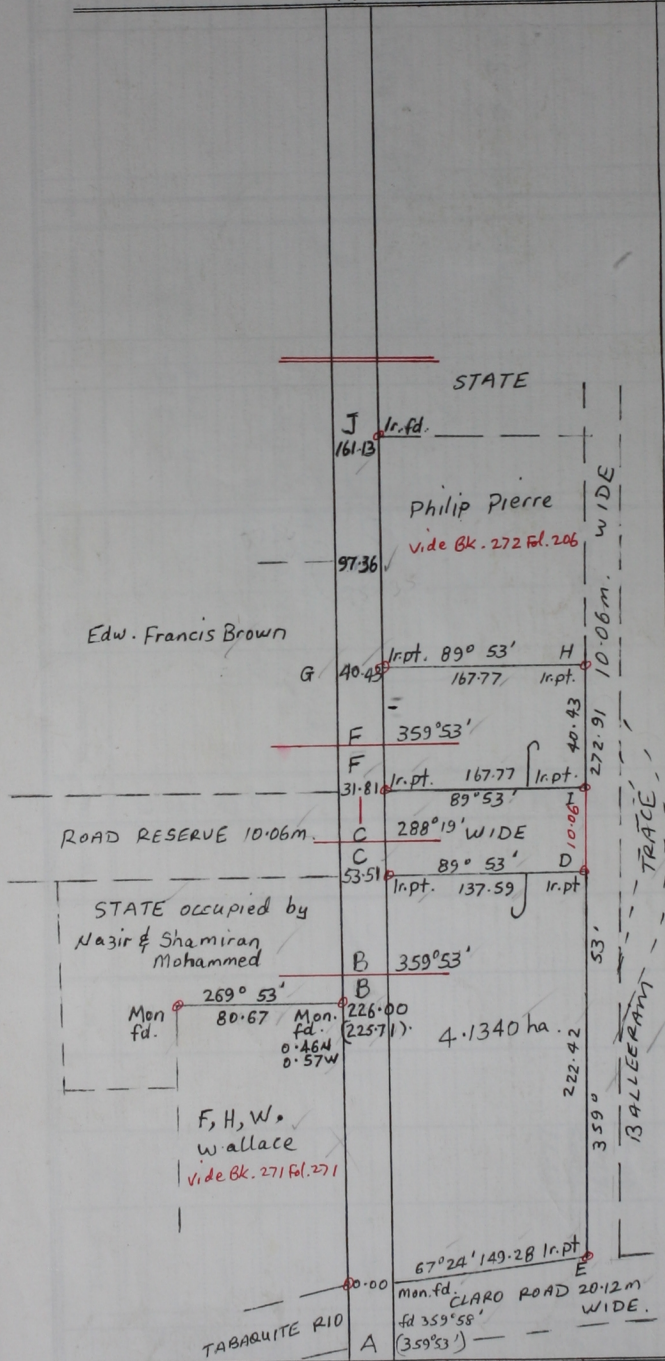 STATE
J Ir.fd.
161.13
Philip Pierre
vide Bk. 272 Fol. 206
97.36
10.06m. WIDE
Edw. Francis Brown
G 40.43 Ir.pt. 89° 53' H
167.77 Ir.pt.
F 359°53'
40.43
272.91
F
31.81 Ir.pt. 167.77 Ir.pt.
89°53' I
ROAD RESERVE 10.06m. C 288°19' WIDE
10.06
C
53.51 89° 53' D
Ir.pt. 137.59 Ir.pt
STATE occupied by
Nazir & Shamiran
Mohammed
B 359°53'
B
269° 53'
Mon fd. 80.67 Mon. fd. 226.00
(225.71).
0.46N
0.57W
4.1340 ha.
222.42
359° 53'
BALLEERAM TRACE
F, H, W.
Wallace
vide Bk. 271 Fol. 271
67°24' 149.28 Ir.pt
E
00.00 mon.fd.
CLARO ROAD 20.12m
WIDE.
TABAQUITE RIO
fd 359°58'
A (359°53')